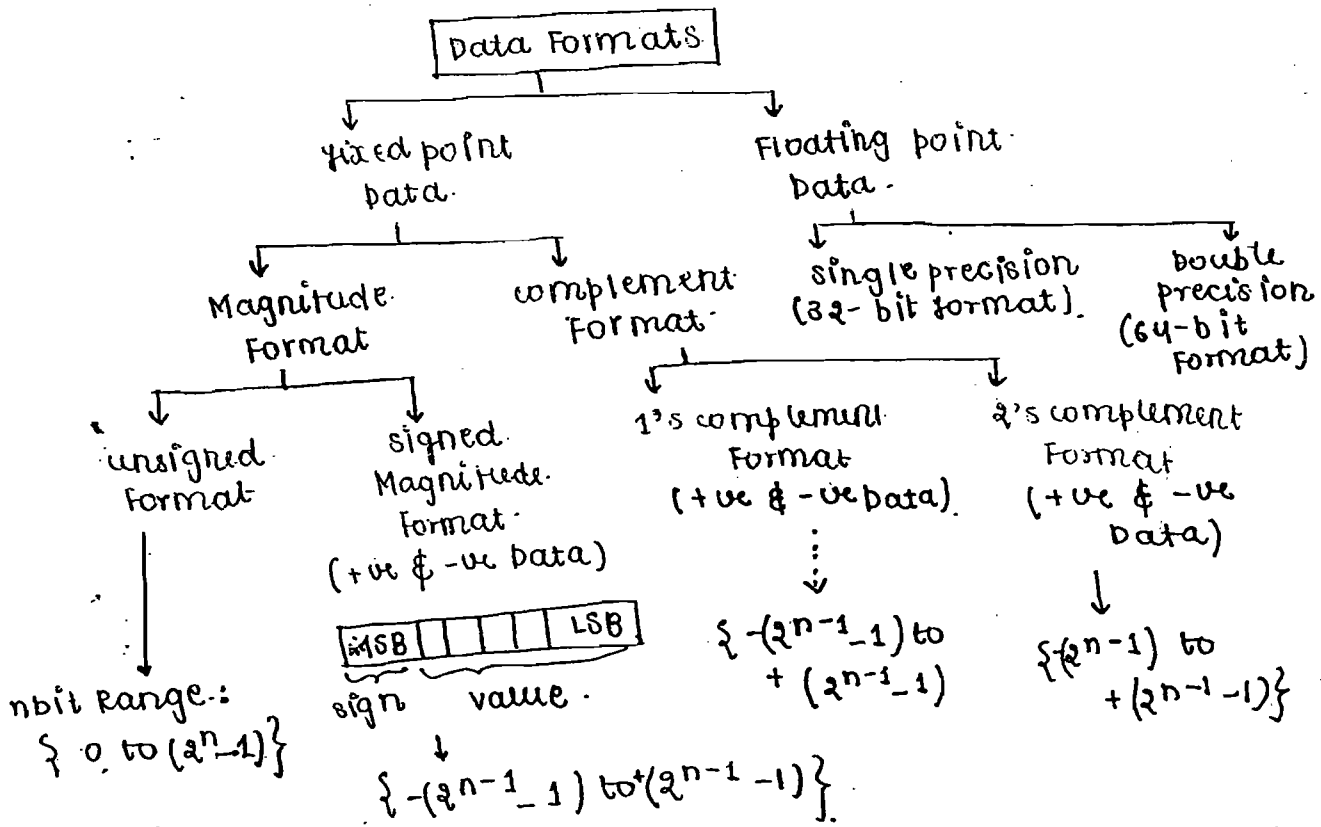 Data Formats
Fixed point
Data.
Floating point
Data.
Magnitude
Format
complement
Format
single precision
(32-bit format).
Double
precision
(64-bit
Format)
unsigned
Format
signed
Magnitude
Format
(+ve & -ve Data)
1's complement
Format
(+ve & -ve Data).
2's complement
Format
(+ve & -ve
Data)
MSB LSB
sign value.
nbit Range:
{ 0 to (2ⁿ-1)}
{-(2ⁿ⁻¹-1) to +(2ⁿ⁻¹-1)}.
{-(2ⁿ⁻¹-1) to
+(2ⁿ⁻¹-1)
{-(2ⁿ⁻¹) to
+(2ⁿ⁻¹-1)}